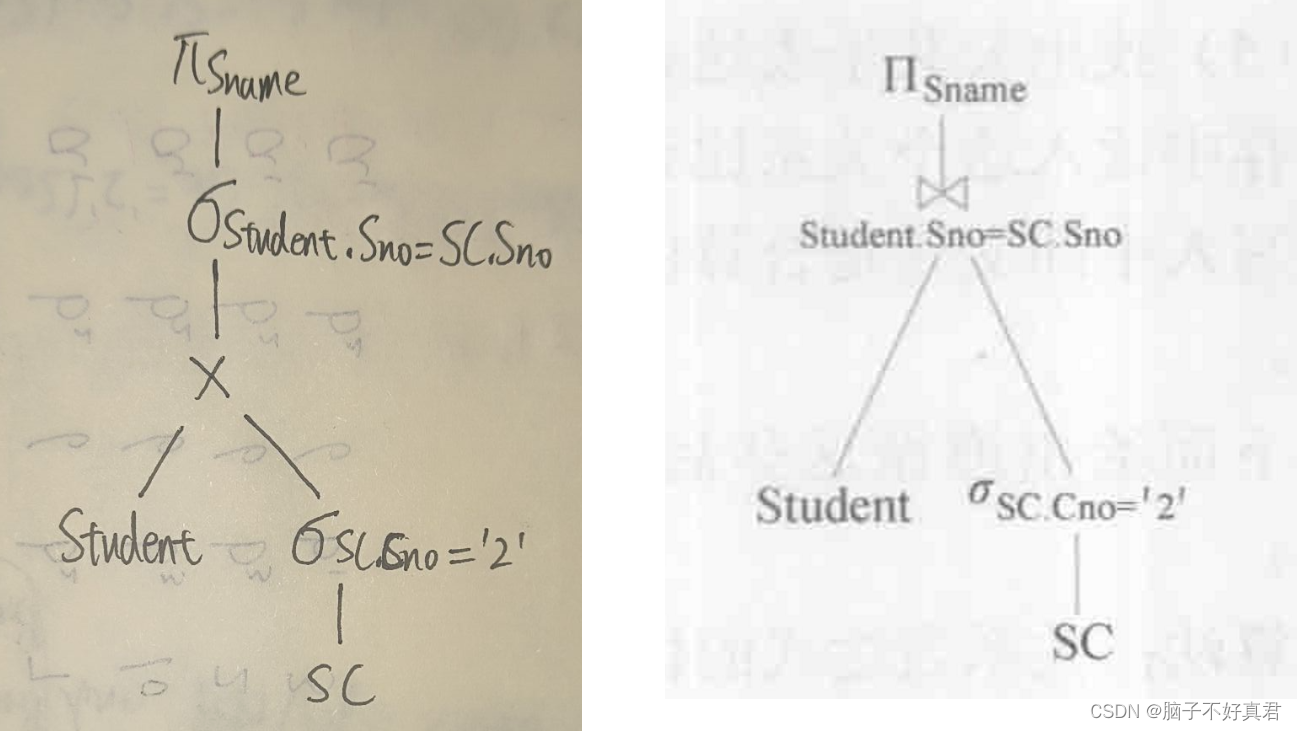 πSname
σStudent.Sno=SC.Sno
×
Student σSC.Cno='2'
SC
ΠSname
⋈
Student.Sno=SC.Sno
Student σSC.Cno='2'
SC
CSDN @脑子不好真君